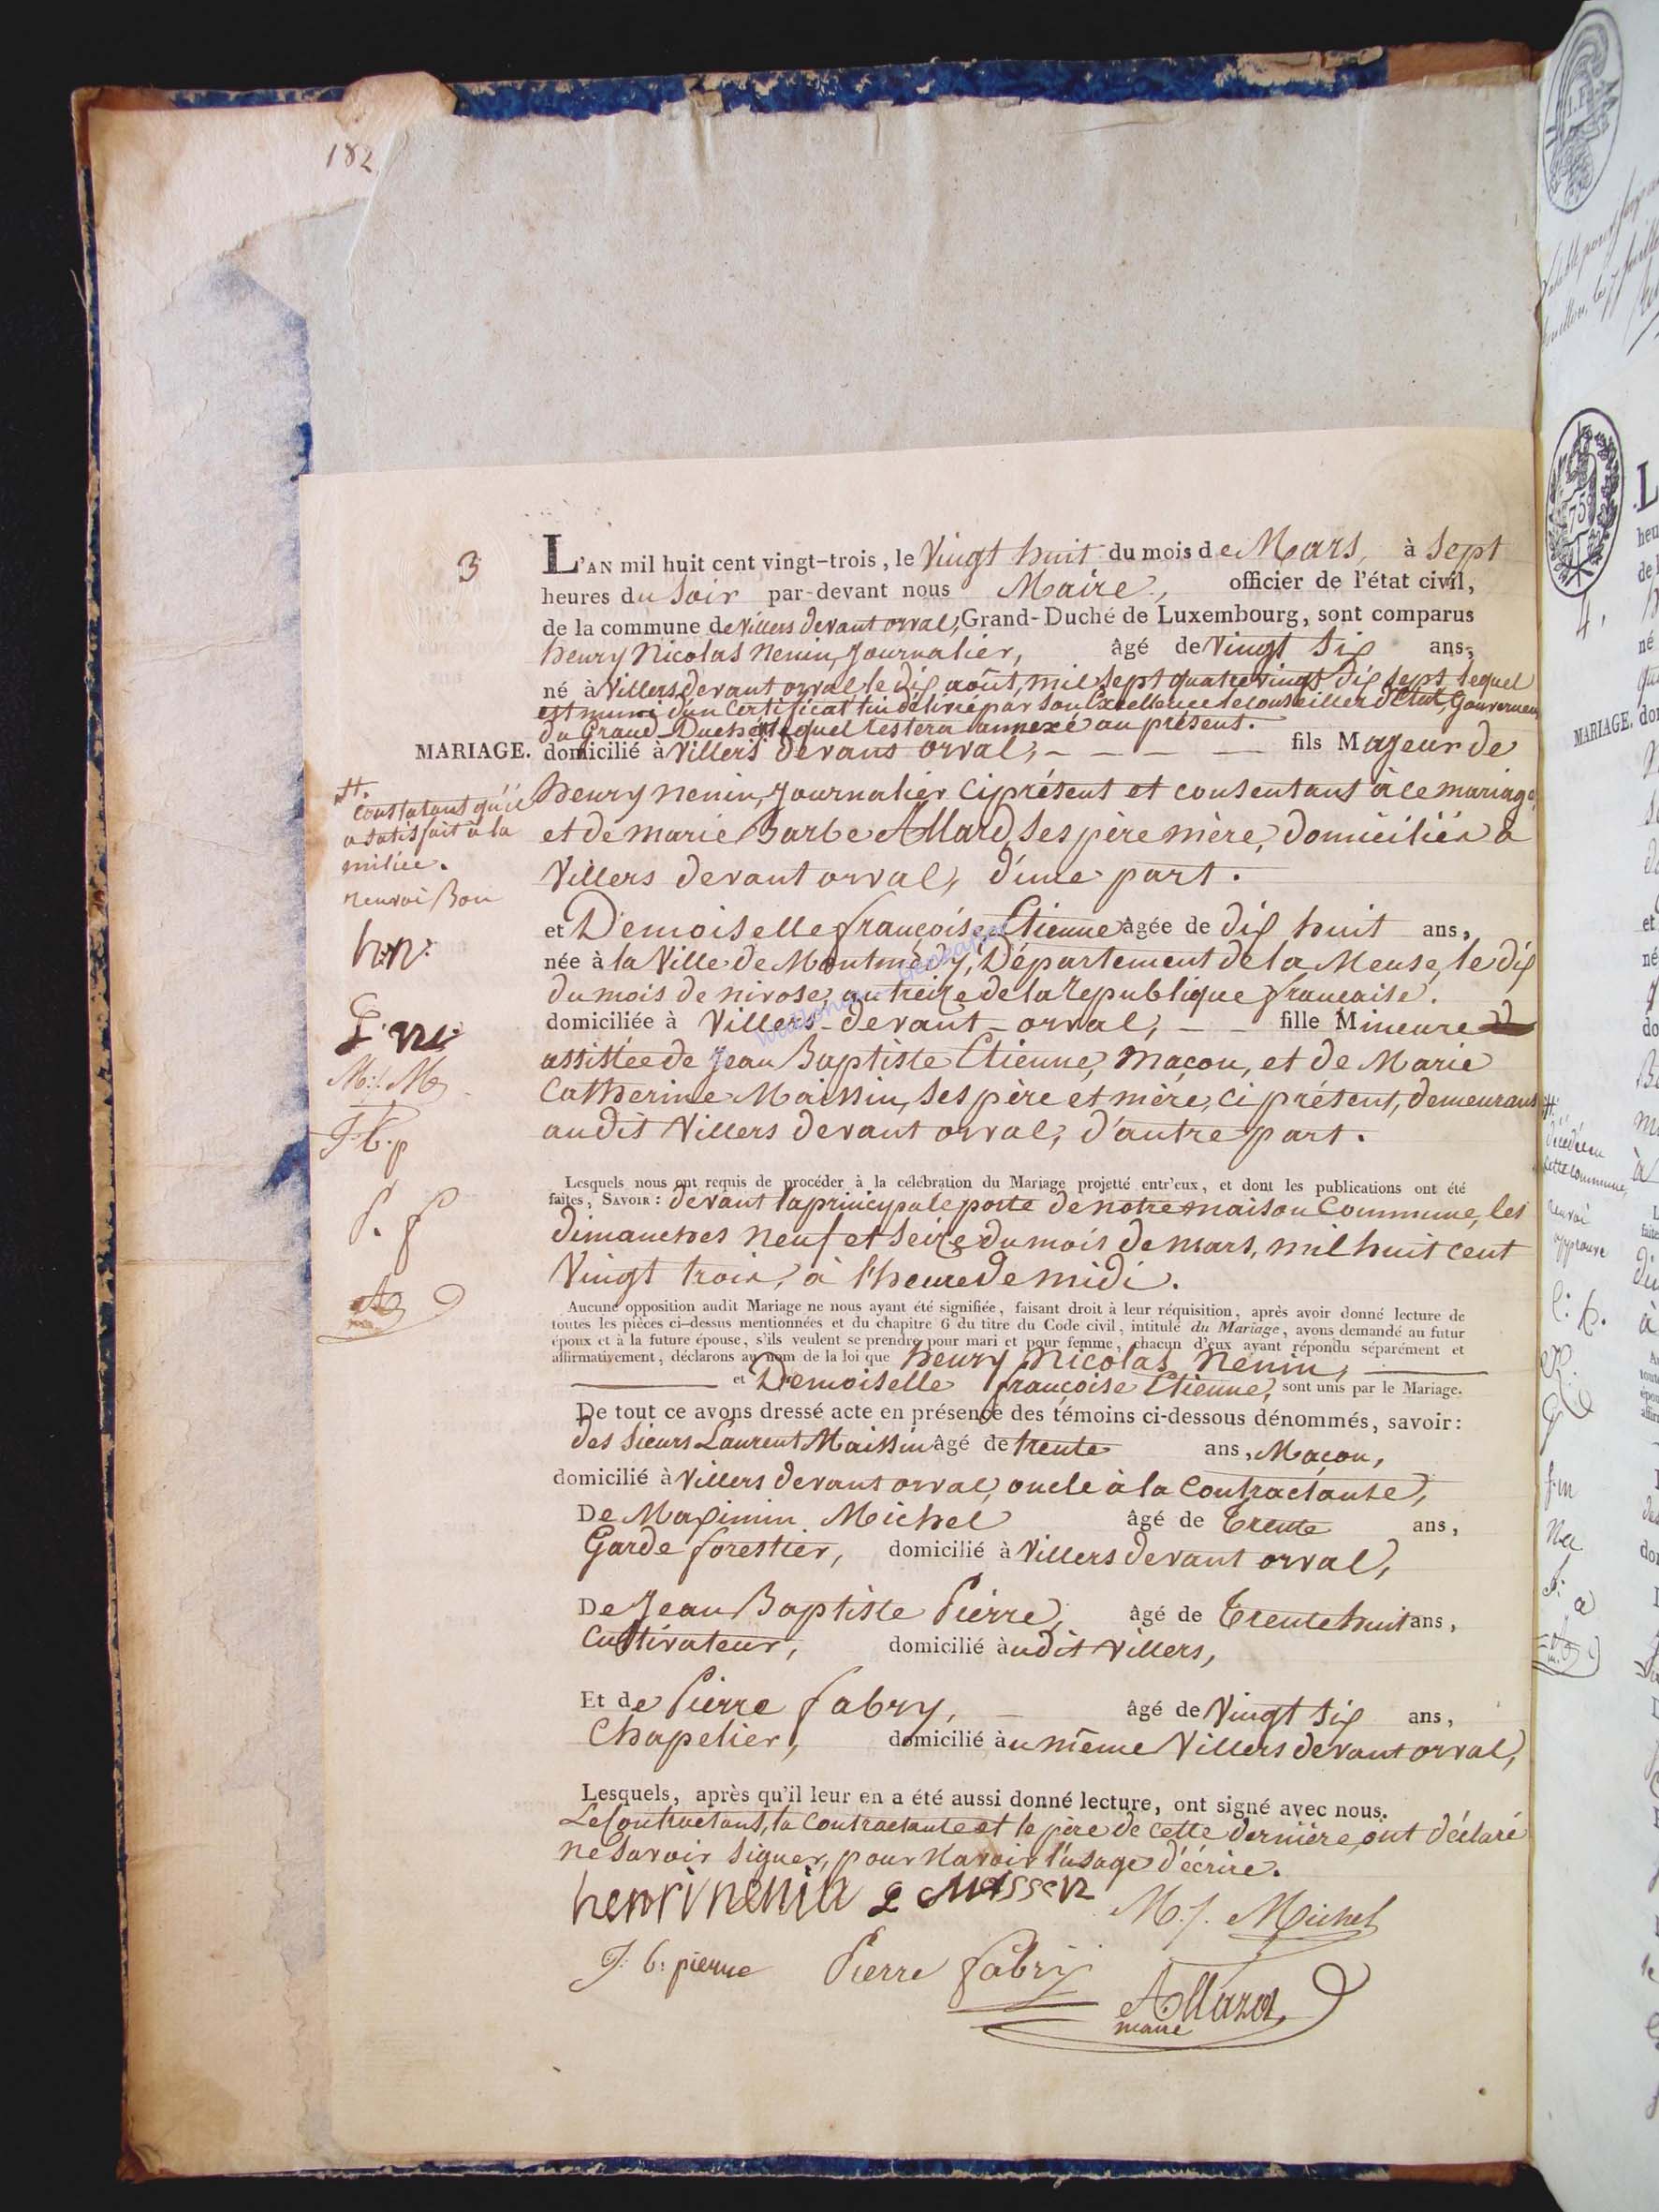 182
3
L'AN mil huit cent vingt-trois, le Vingt huit du mois de Mars, à Sept
heures du Soir par-devant nous Maire, officier de l'état civil,
de la commune de Villers devant orval, Grand-Duché de Luxembourg, sont comparus
henry Nicolas Nenin, Journalier, âgé de Vingt Six ans,
né à Villers devant orval, le dix août, mil Sept quatre vingt dix Sept, lequel
est muni d'un Certificat lui délivré par Son Excellence le Conseiller d'Etat, Gouverneur
du Grand-Duché, lequel restera annexé au présent.
MARIAGE. domicilié à Villers devant orval, fils Majeur de
henry Nenin, Journalier ci présent et consentant à ce mariage,
et de marie Barbe Allard, Ses père mère, domiciliés à
Villers devant orval, d'une part.
#. Constatant qu'il
a satisfait à la
milice.
renvoi Bon
h:n:
L. m
M:J. M
J. b. p
P. f
A
et Demoiselle françoise Etienne âgée de dix huit ans,
née à la Ville de Montmédy, Département de la Meuse, le dix
du mois de nivose, an treize de la République française.
domiciliée à Villers-devant-orval, fille Mineure
assistée de Jean Baptiste Etienne, Maçon, et de Marie
Catherine Maissin, Ses père et mère, ci présent, demeurans
audit Villers devant orval, d'autre part.
Lesquels nous ont requis de procéder à la célébration du Mariage projetté entr'eux, et dont les publications ont été
faites, SAVOIR: devant la principale porte de notre maison Commune, les
dimanches neuf et Seize du mois de mars, mil huit cent
Vingt trois, à l'heure de midi.
Aucune opposition audit Mariage ne nous ayant été signifiée, faisant droit à leur réquisition, après avoir donné lecture de
toutes les pièces ci-dessus mentionnées et du chapitre 6 du titre du Code civil, intitulé du Mariage, avons demandé au futur
époux et à la future épouse, s'ils veulent se prendre pour mari et pour femme, chacun d'eux ayant répondu séparément et
affirmativement, déclarons au nom de la loi que henry Nicolas Nenin,
et Demoiselle françoise Etienne, sont unis par le Mariage.
De tout ce avons dressé acte en présence des témoins ci-dessous dénommés, savoir:
des Sieurs Laurent Maissin âgé de trente ans, Maçon,
domicilié à Villers devant orval, oncle à la Contractante,
De Maximin Michel âgé de Trente ans,
Garde forestier, domicilié à Villers devant orval,
De Jean Baptiste Pierre, âgé de Trente huit ans,
Cultivateur, domicilié àudit Villers,
Et de Pierre fabry, âgé de Vingt Six ans,
Chapelier, domicilié àu même Villers devant orval,
Lesquels, après qu'il leur en a été aussi donné lecture, ont signé avec nous.
Le Contractant, la Contractante et le père de cette dernière, ont déclaré
ne Savoir Signer, pour n'avoir l'usage d'écrire.
henri nenin L MASSeN M.J. Michel
J: b: pierre Pierre fabry
Allard,
maire
4.
MARIAGE.
décédée en
cette commune,
renvoi
approuvé